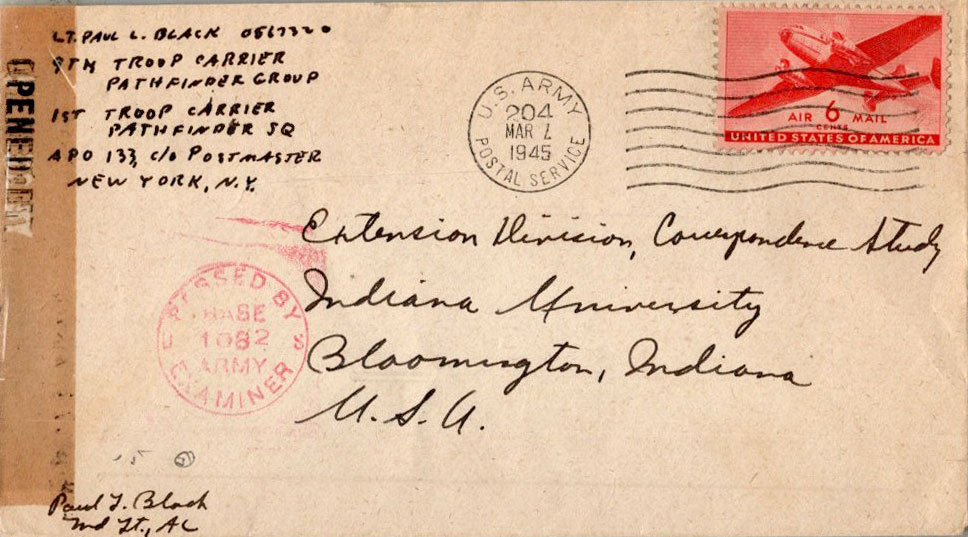 LT. PAUL L. BLACK 0567320
9TH TROOP CARRIER
PATHFINDER GROUP
1ST TROOP CARRIER
PATHFINDER SQ
APO 133, c/o POSTMASTER
NEW YORK, N.Y.
OPENED BY
U.S. ARMY
204
MAR
1945
POSTAL SERVICE
AIR 6 MAIL
CENTS
UNITED STATES OF AMERICA
Extension Division, Correspondence Study
Indiana University
Bloomington, Indiana
U.S.A.
PASSED BY
BASE
1082
ARMY
EXAMINER
U S
Paul L. Black
2nd Lt., AC